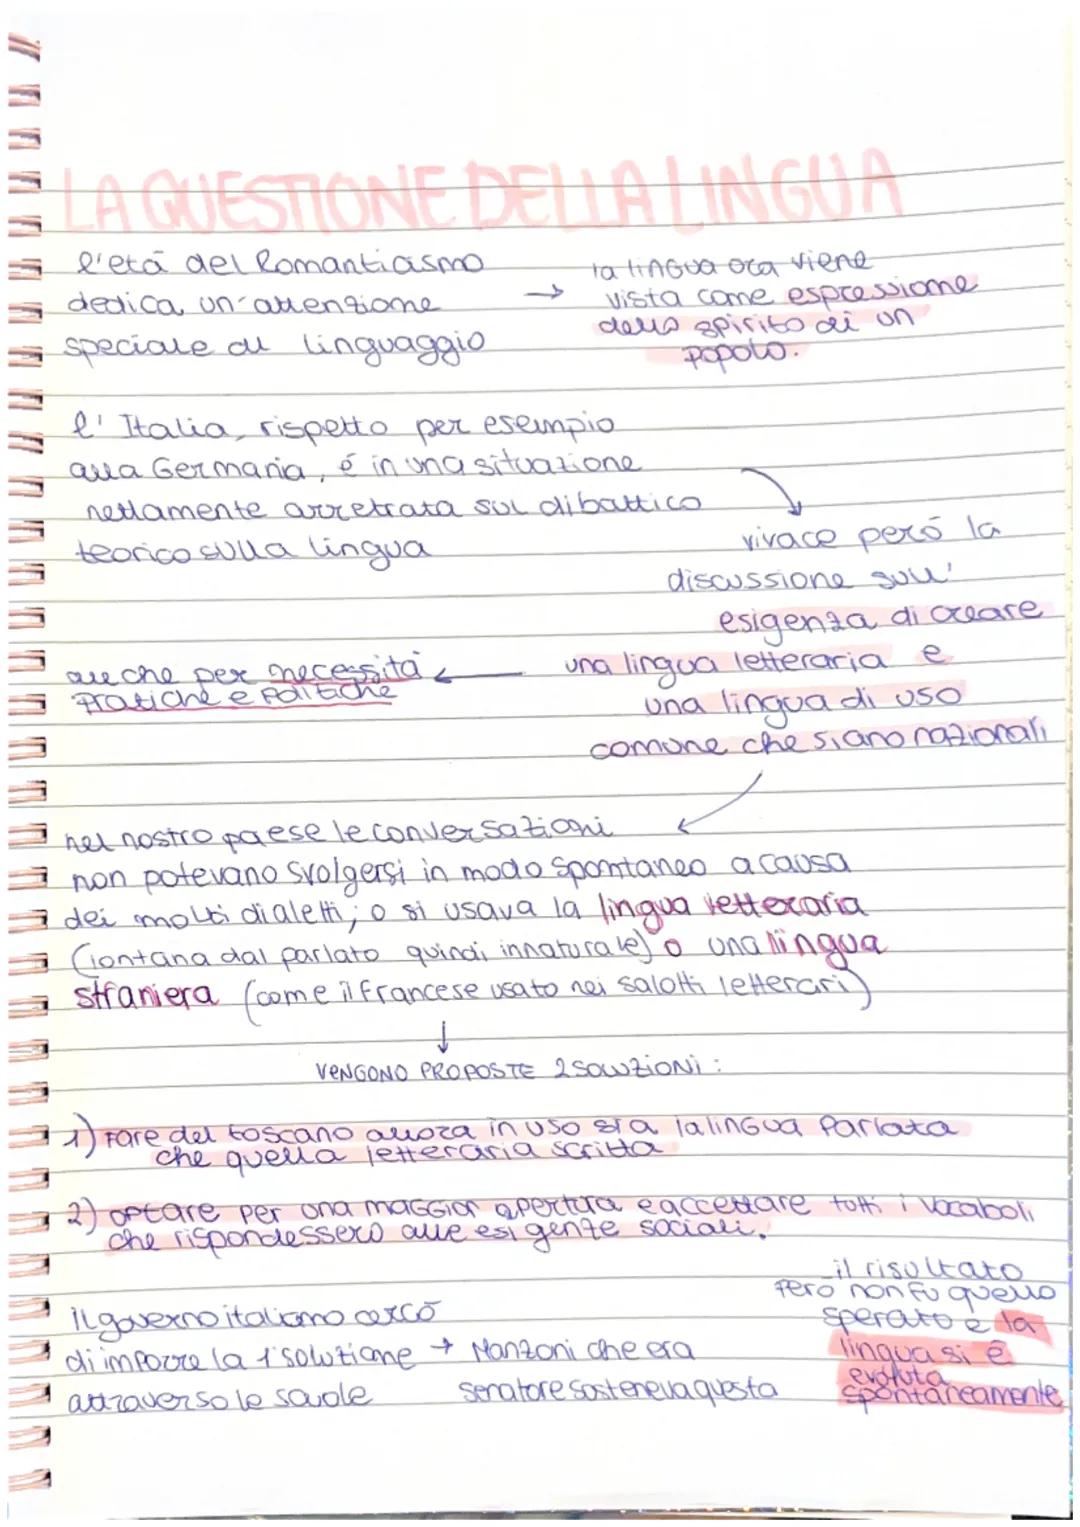 LA QUESTIONE DELLA LINGUA
l'età del Romanticismo
dedica un'attenzione
speciale al linguaggio
→ la lingua ora viene
vista come espressione
dello spirito di un
popolo.
l'Italia, rispetto per esempio
alla Germania, é in una situazione
nettamente arretrata sul dibattico
teorico sulla lingua
vivace peró la
discussione sull'
esigenza di creare
una lingua letteraria e
una lingua di uso
comune che siano nazionali
anche per necessità
pratiche e politiche
nel nostro paese le conversazioni
non potevano svolgersi in modo spontaneo a causa
dei molti dialetti; o si usava la lingua letteraria
(lontana dal parlato quindi innaturale) o una lingua
straniera (come il francese usato nei salotti letterari)
↓
VENGONO PROPOSTE 2 SOLUZIONI:
1) Fare del toscano allora in uso sia la lingua Parlata
che quella letteraria scritta
2) optare per una maggior apertura e accettare tutti i vocaboli
che rispondessero alle esigenze sociali.
il governo italiano cercò
di imporre la 1° soluzione → Manzoni che era
attraverso le scuole senatore sosteneva questa
il risultato
però non fu quello
sperato e la
lingua si è
evoluta
spontaneamente